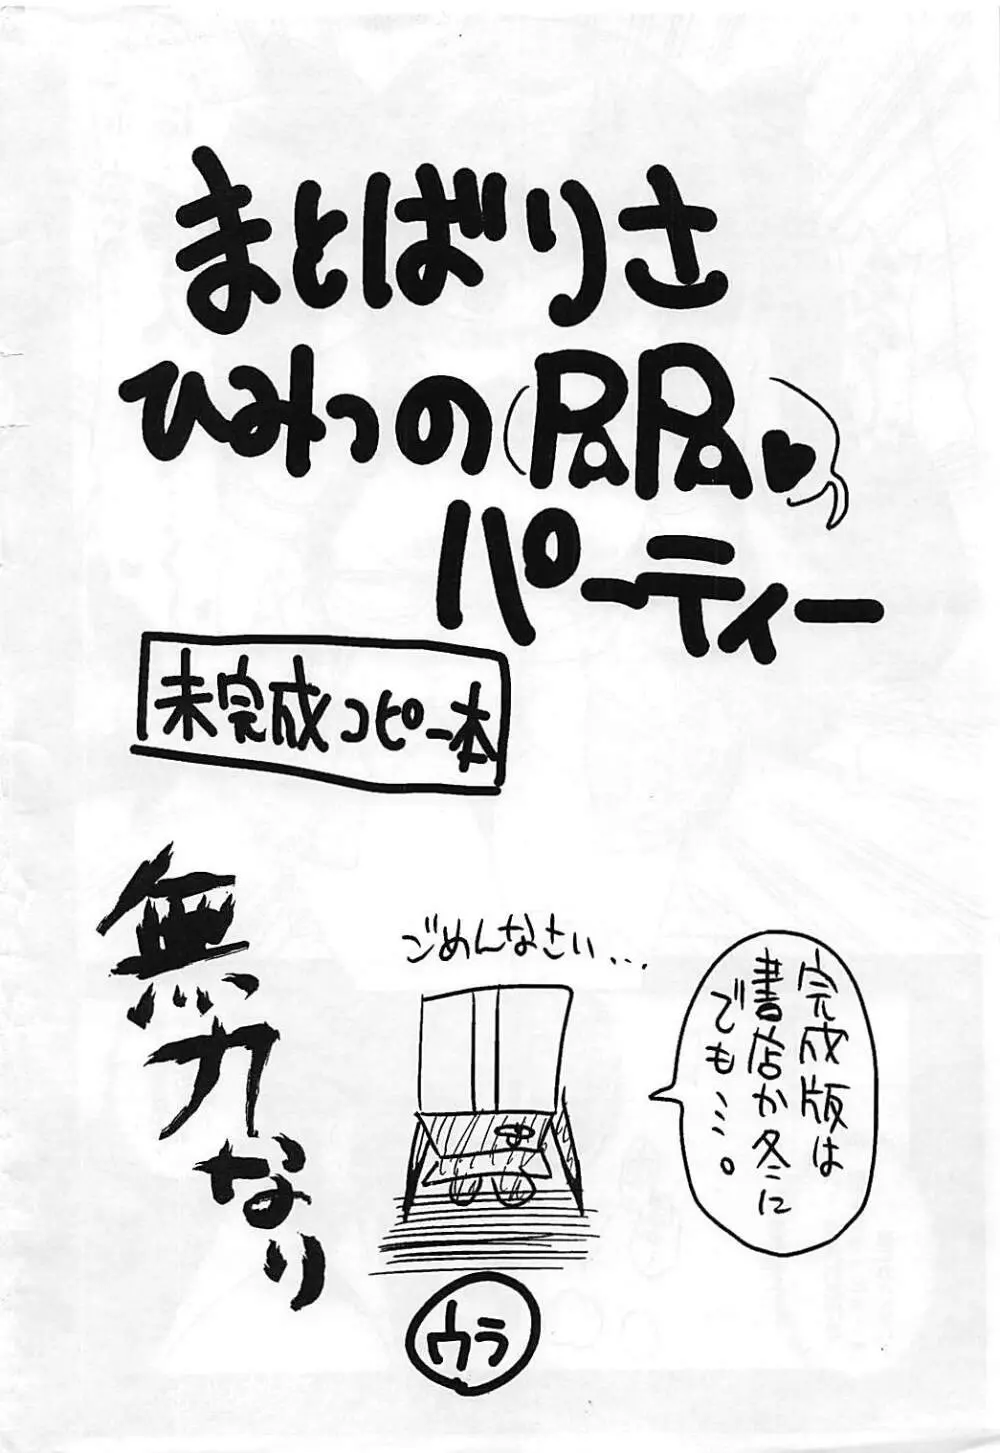 まとばりさ
ひみつのPAPA♥
パーティー
未完成コピー本
無力なり
ごめんなさい...
完成版は
書店か冬に
でも・・・。
ウラ